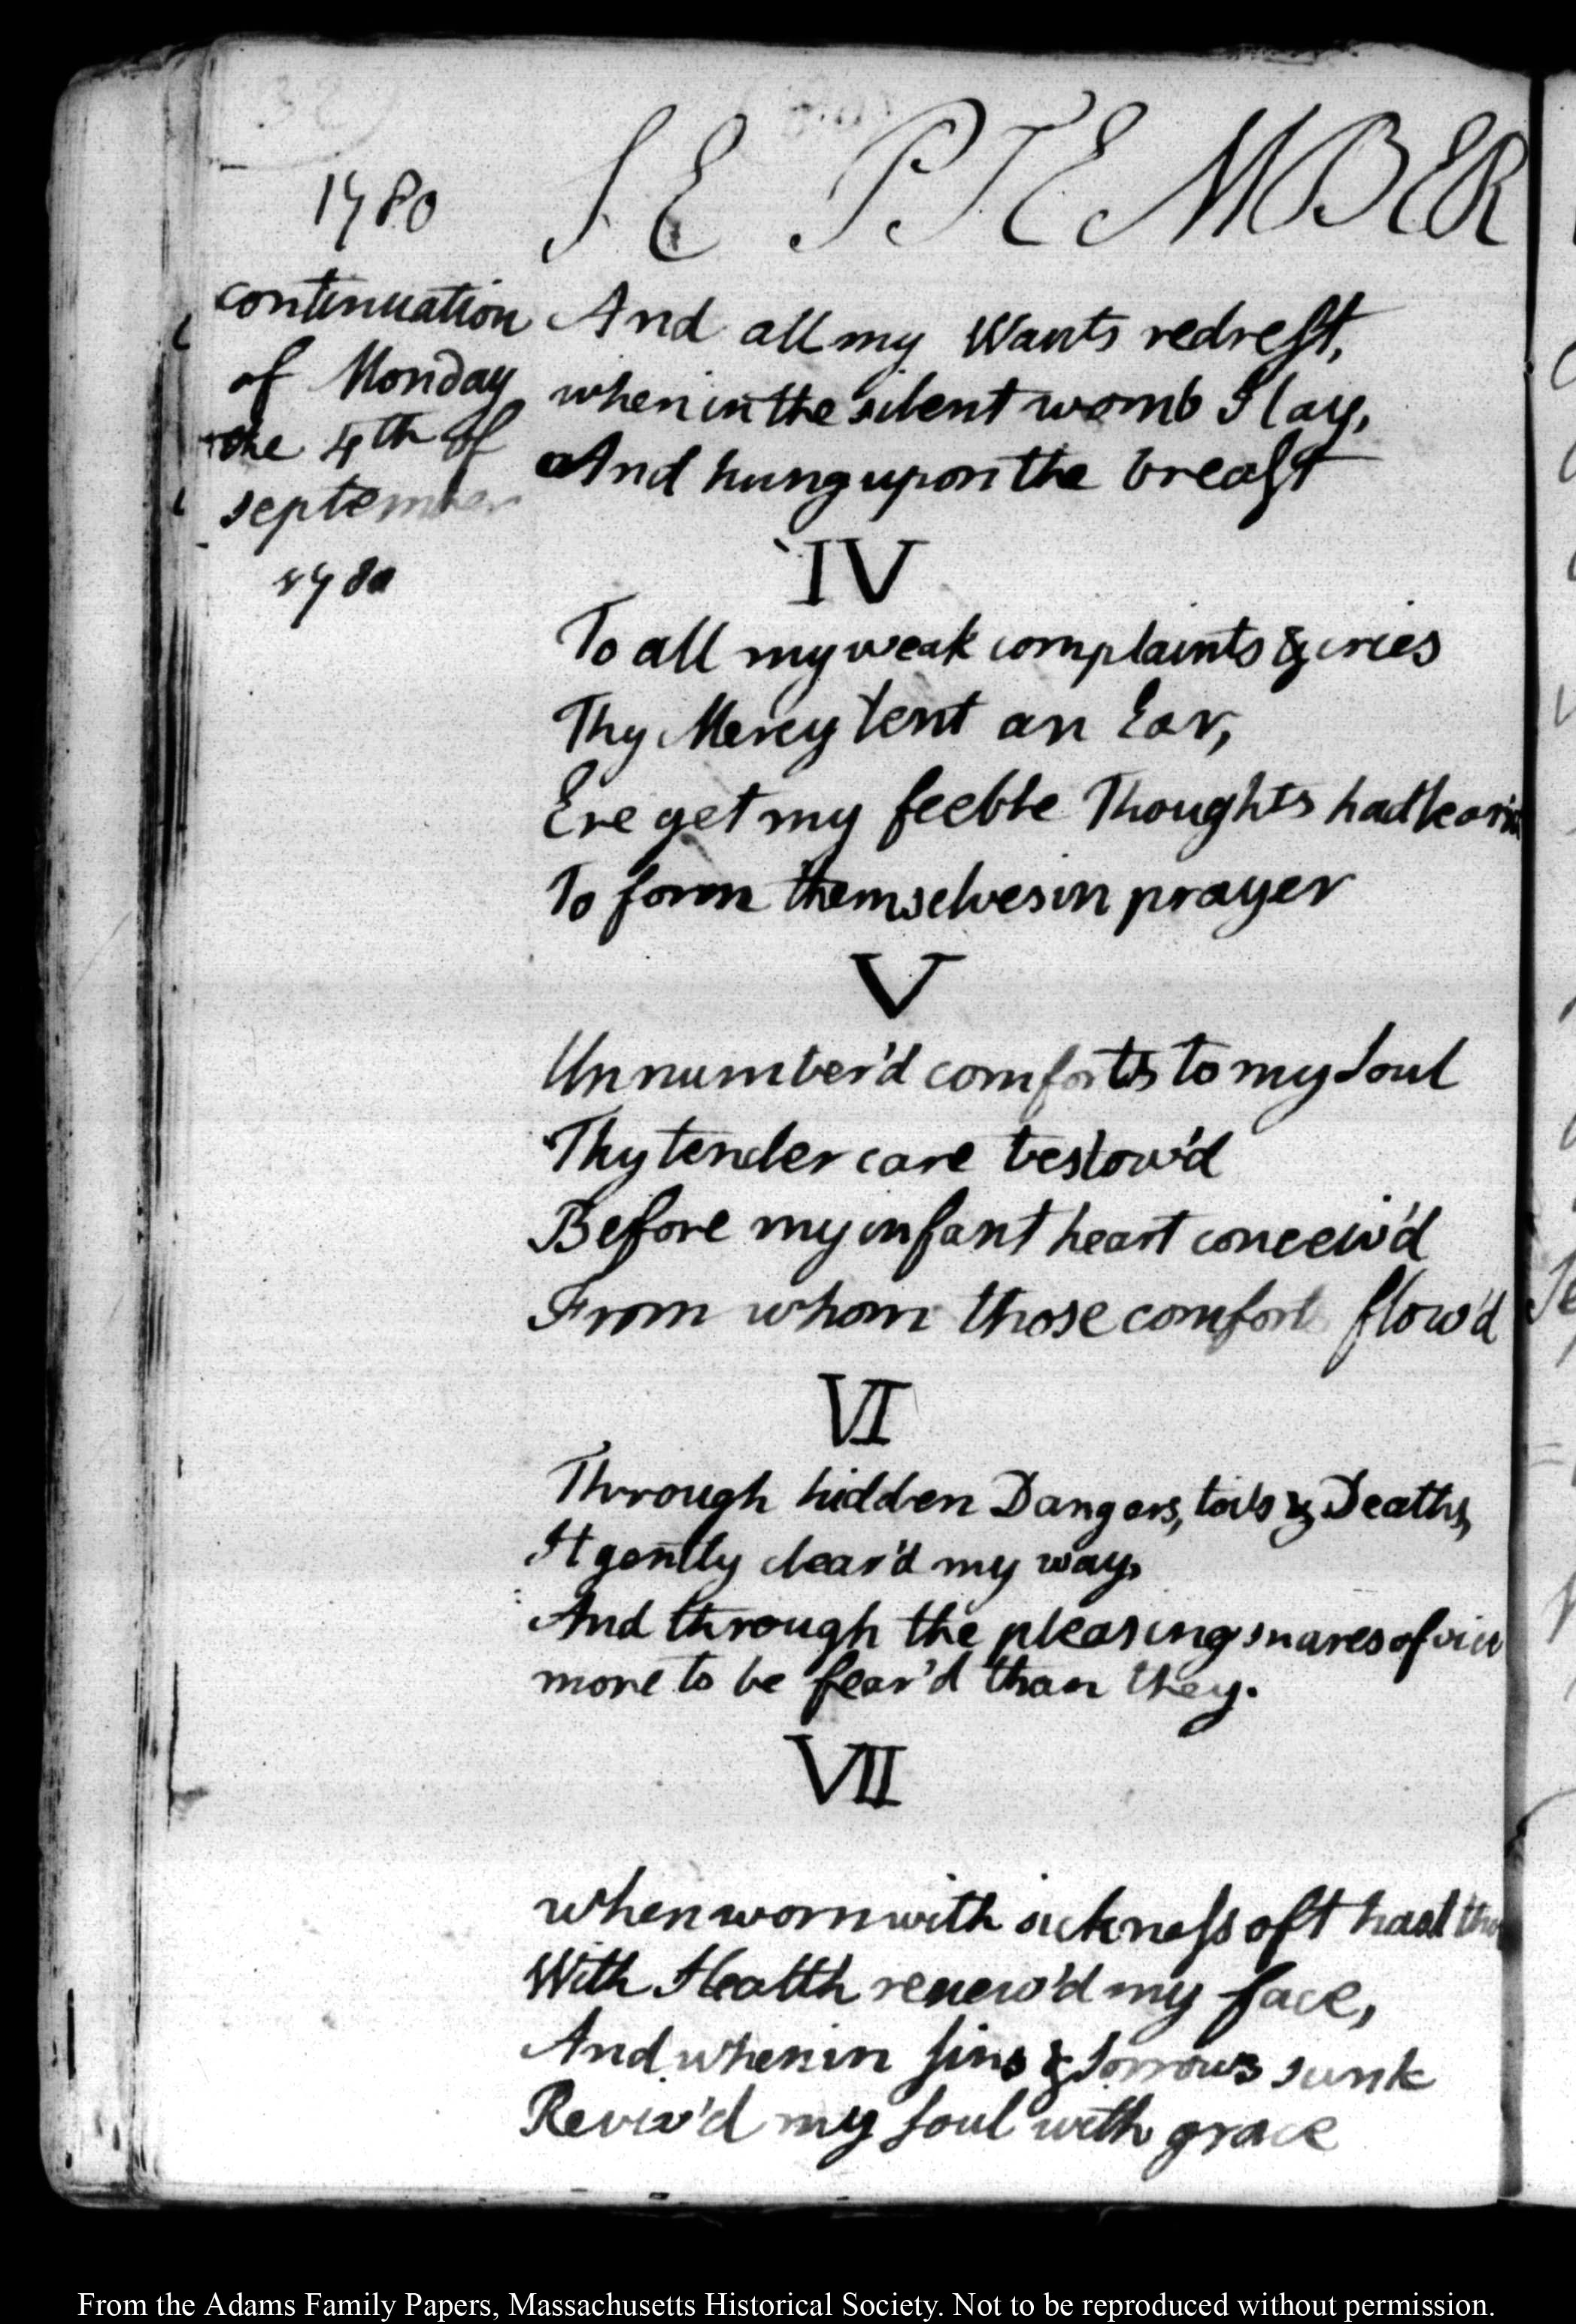 1780
SEPTEMBER
continuation
of Monday
the 4th of
september
1780
And all my Wants redresst,
when in the silent womb I lay,
And hung upon the breast
IV
To all my weak complaints & cries
Thy Mercy lent an Ear,
Ere yet my feeble Thoughts had learn
To form themselves in prayer
V
Unnumber'd comforts to my Soul
Thy tender care bestow'd
Before my infant heart conceiv'd
From whom those comforts flow'd
VI
Through hidden Dangers, toils & Deaths,
It gently clear'd my way,
And through the pleasing snares of vice
more to be fear'd than they.
VII
when worn with sickness oft hast thou
With Health renew'd my face,
And when in sins & Sorrows sunk
Reviv'd my soul with grace
From the Adams Family Papers, Massachusetts Historical Society. Not to be reproduced without permission.